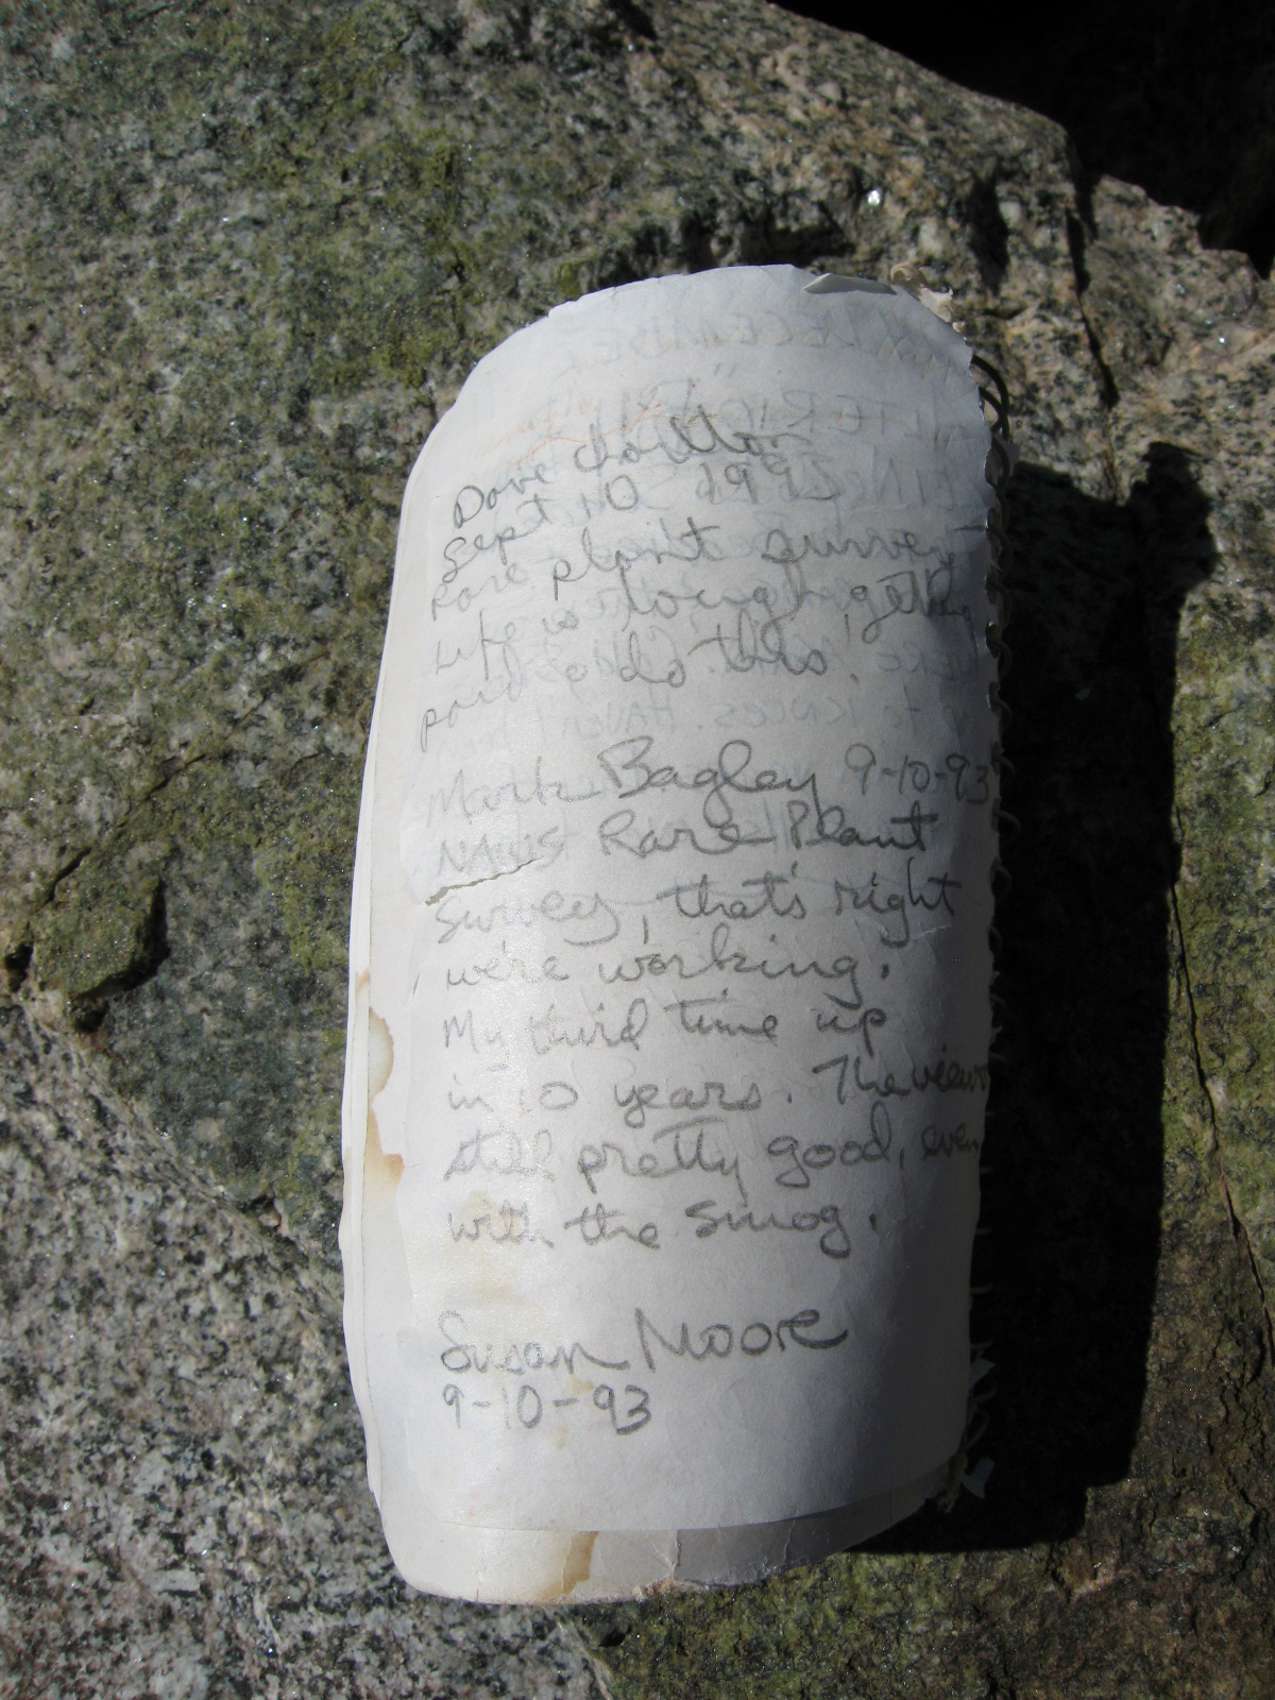 Dave Charlton
Sept 10 1993
Rare plant survey
Life is tough, getting
paid to do this!
Mark Bagley 9-10-93
NAWS Rare Plant
Survey, that's right
we're working.
My third time up
in 10 years. The view's
still pretty good, even
with the smog.
Susan Moore
9-10-93